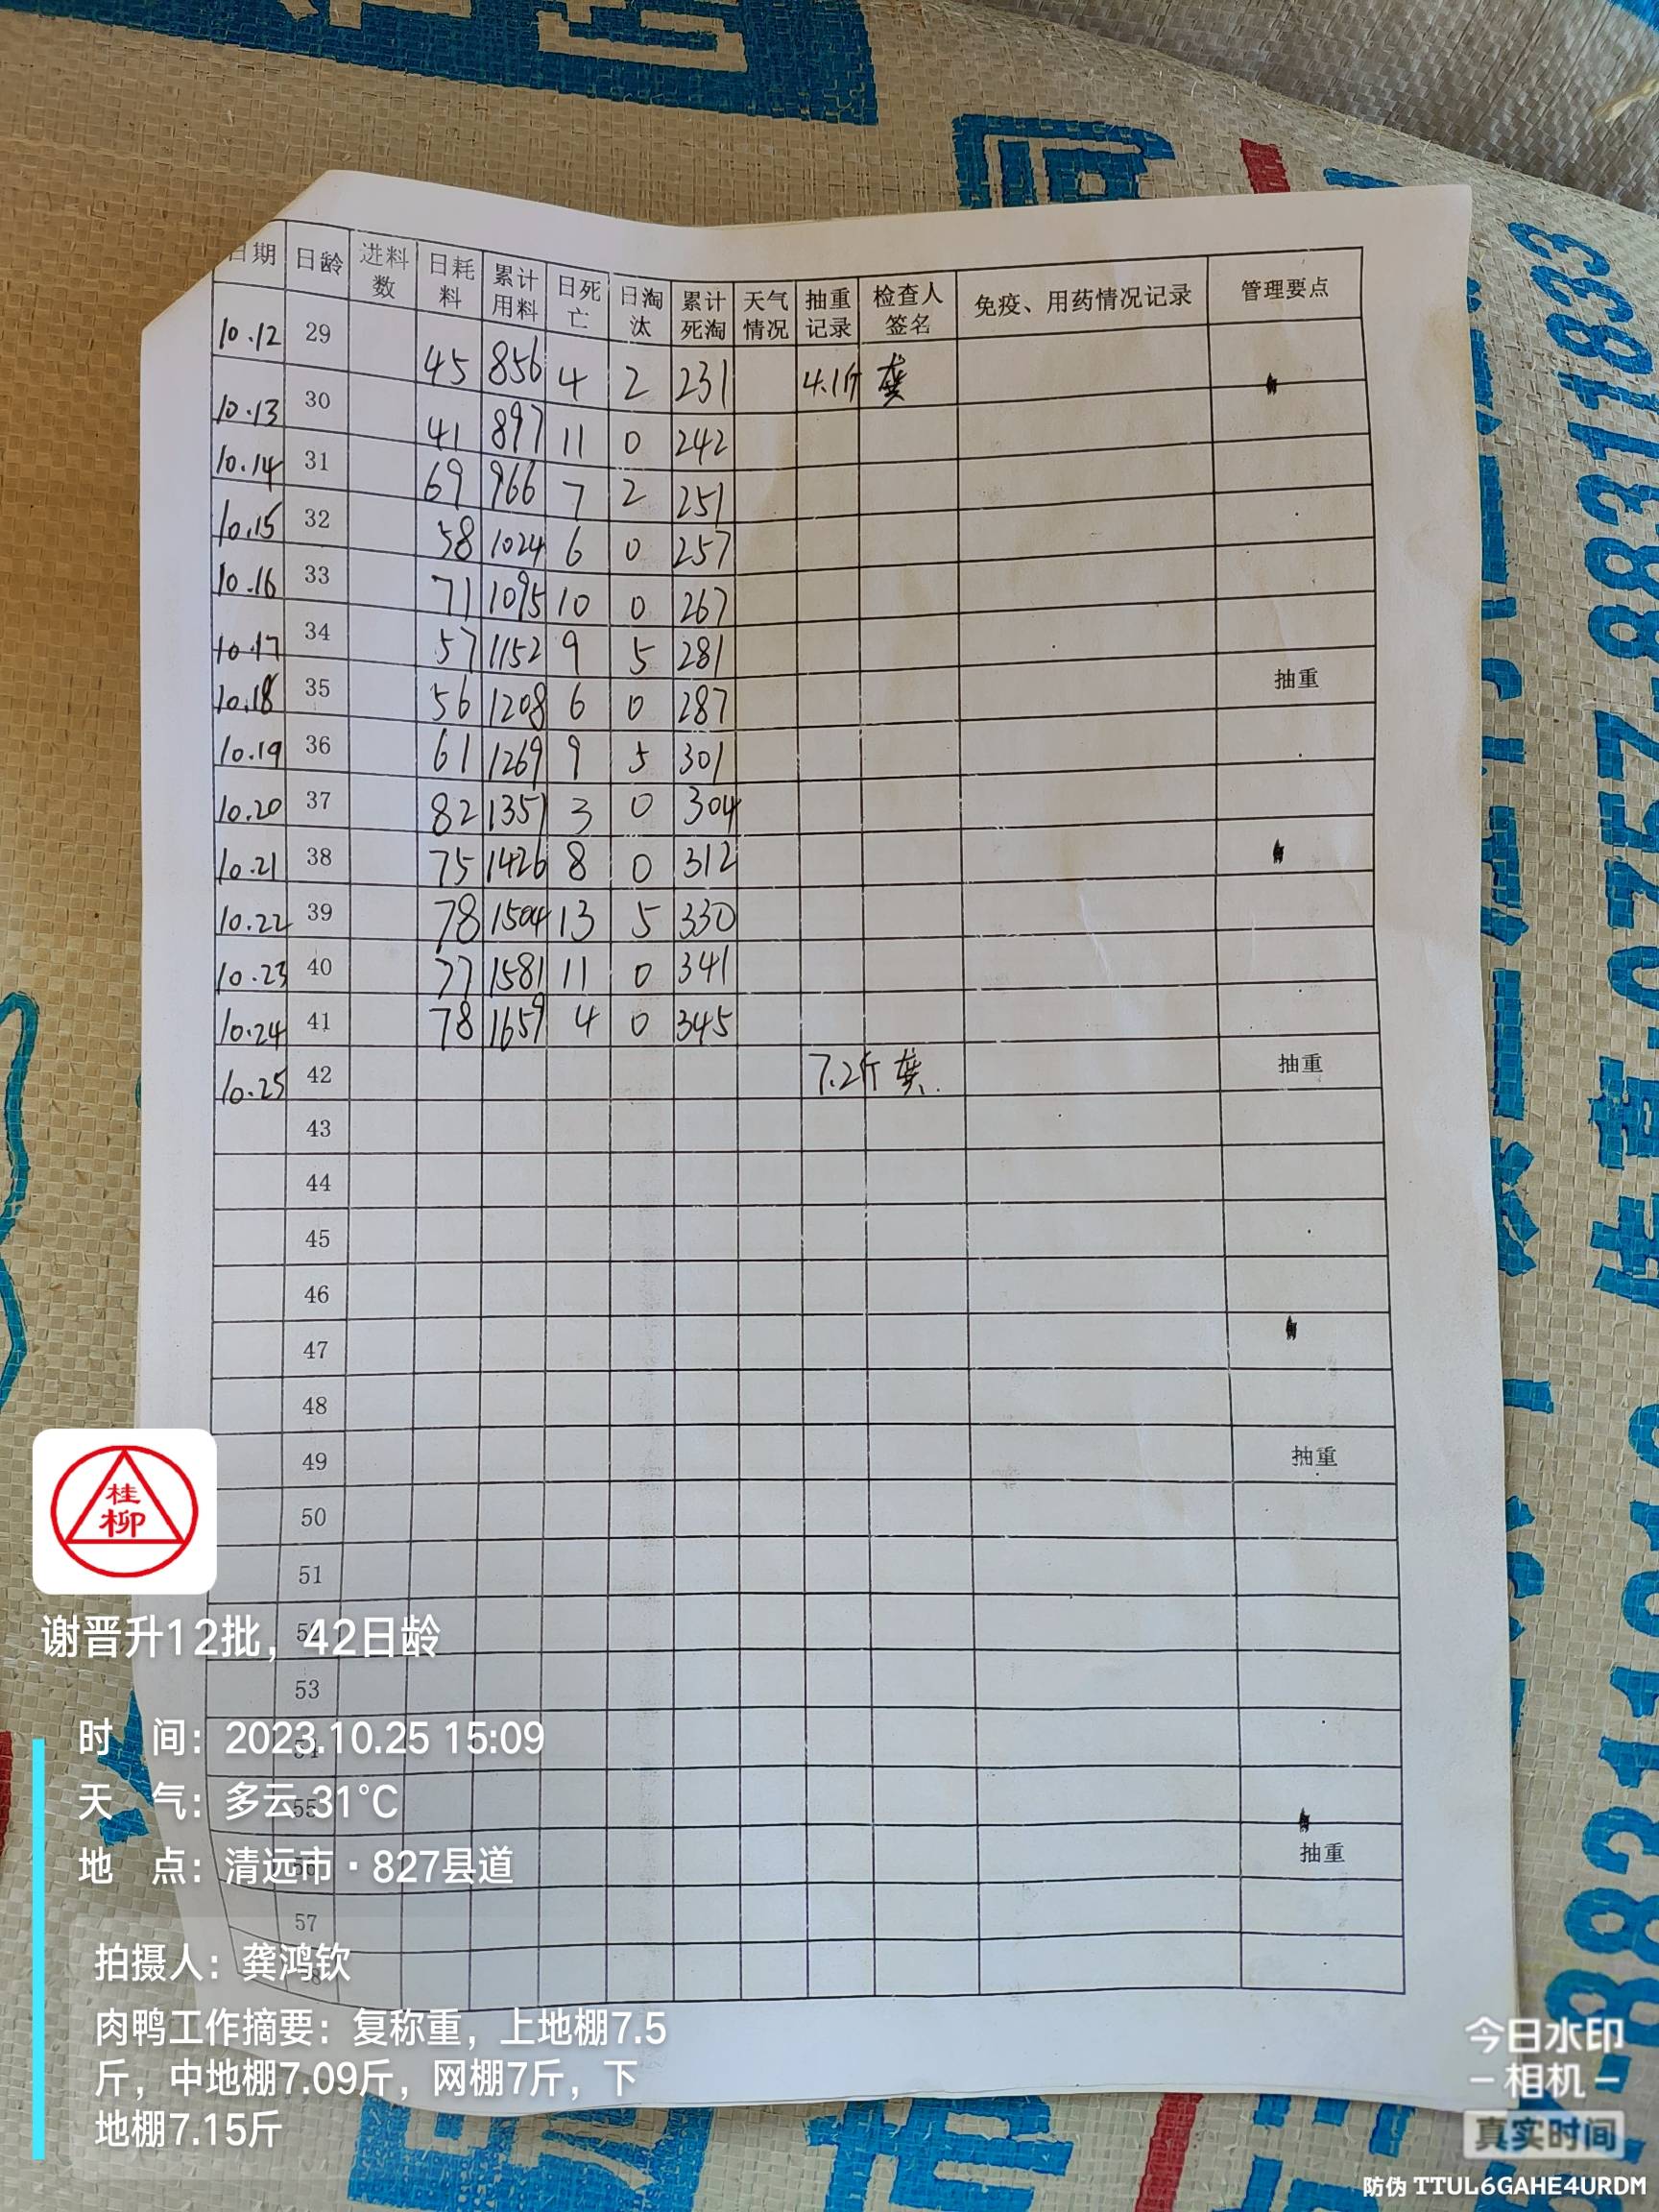 日期 日龄 进料数 日耗料 累计用料 日死亡 日淘汰 累计死淘 天气情况 抽重记录 检查人签名 免疫、用药情况记录 管理要点
10.12 29 45 856 4 2 231 4.1斤 龚
10.13 30 41 897 11 0 242
10.14 31 69 966 7 2 251
10.15 32 58 1024 6 0 257
10.16 33 71 1095 10 0 267
10.17 34 57 1152 9 5 281
10.18 35 56 1208 6 0 287 抽重
10.19 36 61 1269 9 5 301
10.20 37 82 1351 3 0 304
10.21 38 75 1426 8 0 312
10.22 39 78 1504 13 5 330
10.23 40 77 1581 11 0 341
10.24 41 78 1659 4 0 345
10.25 42 7.2斤 龚 抽重
43
44
45
46
47
48
49 抽重
50
51
53
54
55
抽重
57
58
桂柳
谢晋升12批，42日龄
时 间：2023.10.25 15:09
天 气：多云 31℃
地 点：清远市·827县道
拍摄人：龚鸿钦
肉鸭工作摘要：复称重，上地棚7.5
斤，中地棚7.09斤，网棚7斤，下
地棚7.15斤
今日水印
相机
真实时间
防伪 TTUL6GAHE4URDM
0757-88311833